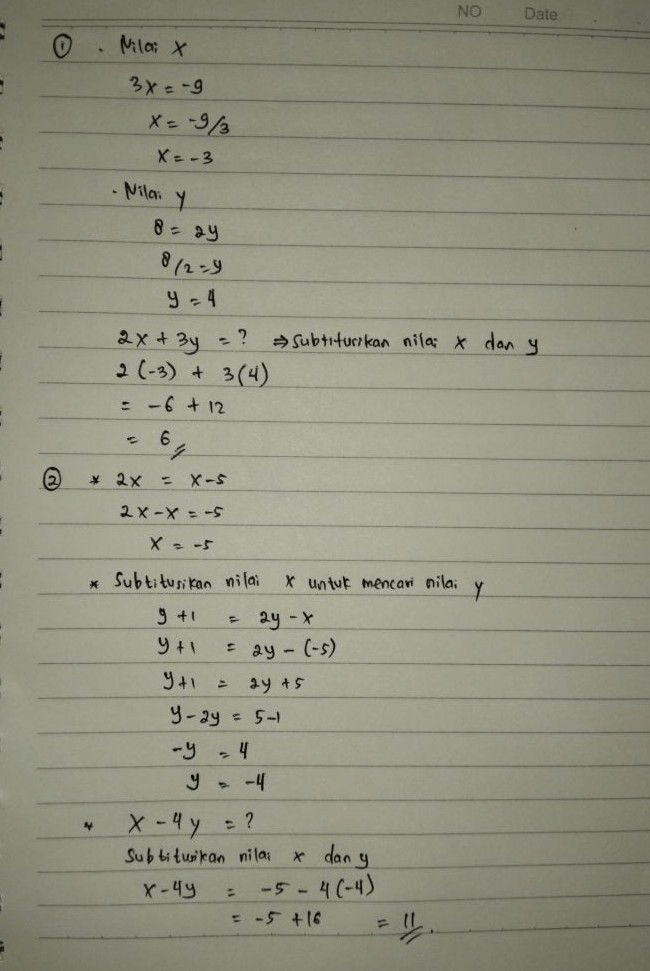 NO Date
① . Nilai x
3x = -9
x = -9/3
x = -3
- Nilai y
8 = 2y
8/2 = y
y = 4
2x + 3y = ? ⇒ Subtitusikan nilai x dan y
2 (-3) + 3(4)
= -6 + 12
= 6
② * 2x = x-5
2x-x = -5
x = -5
* Subtitusikan nilai x untuk mencari nilai y
y +1 = 2y - x
y +1 = 2y - (-5)
y+1 = 2y +5
y-2y = 5-1
-y = 4
y = -4
* x - 4y = ?
Subtitusikan nilai x dan y
x-4y = -5 - 4(-4)
= -5 +16 = 11.